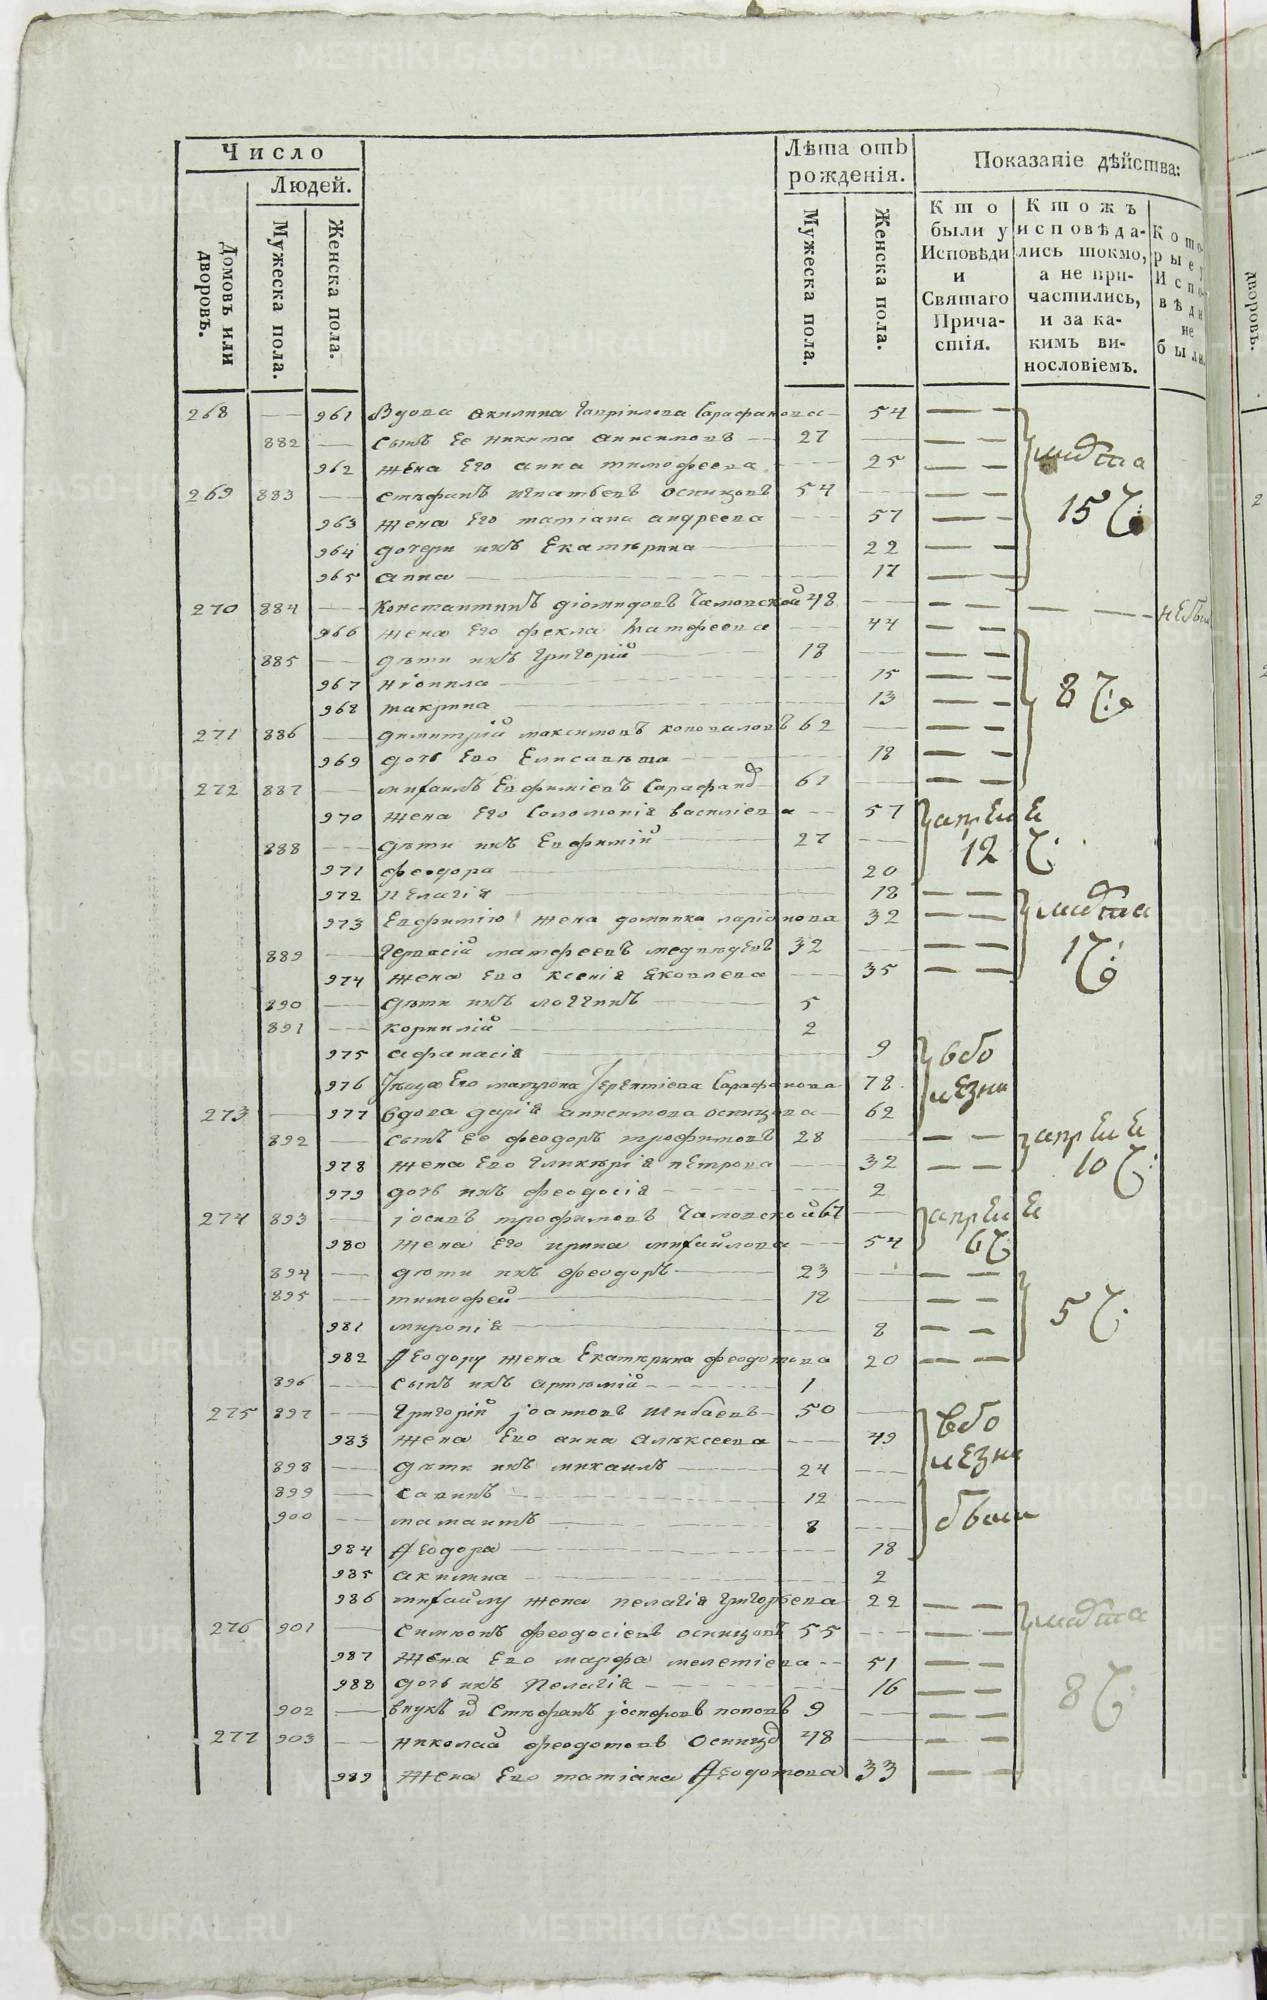 Число
Людей.
Домовъ или дворовъ.
Мужеска пола.
Женска пола.
Лѣта отъ рожденія.
Мужеска пола.
Женска пола.
Показаніе дѣйства:
Кто были у Исповѣди и Святаго Причастія.
Ктожъ исповѣдались токмо, а не причастились, и за какимъ винословіемъ.
Которые у Исповѣди не были.
268 — 961 Вдова Акилина Гаврилова Сарафанова — 54
882 — сынъ Ее Никита Анисимовъ — 27 —
962 жена Его Анна тимофеева — 25
марта
269 883 — стефанъ Игнатьевъ Осинцовъ 54 —
963 жена Его татіана андреева — 57
15 Ч:
964 дочери ихъ Екатѣрина — 22
965 анна — 17
270 884 — Константинъ діомидовъ Чамовской 48 — небылъ
966 жена Его фекла матфеева — 44
885 — дѣти ихъ Григорій — 18 —
967 неонила — 15
8 Ч:
968 макрина — 13
271 886 — димитрій максимовъ коноваловъ 62 —
969 дочь Его Елисавѣта — 18
272 887 — михаилъ Евфиміевъ Сарафано 61 —
970 жена Его Соломонія василіева — 57
апрѣля
888 — дѣти ихъ Евфимій — 27 —
12 Ч:
971 феодора — 20
972 пелагія — 18
973 Евфимію жена домника ларіонова 32
марта
889 — Герасій матфеевъ медвѣдевъ 32 —
17 Ч:
974 жена Его ксенія яковлева — 35
890 — дѣти ихъ логгинъ — 5
891 — корнилій — 2
975 афанасія — 9
вбо
976 Его матрона Терентіева Сарафанова 78
лезни
273 — 977 вдова дарія анисимова осинцова — 62
892 — сынъ Ее феодоръ трофимовъ 28 —
апрѣля
978 жена Его гликѣрія пѣтрова — 32
10 Ч:
979 дочь ихъ феодосія — 2
274 893 — іосифъ трофимовъ Чамовской 67 —
апрѣля
980 жена Его ирина михайлова — 54
6 Ч:
894 — дѣти ихъ феодоръ — 23 —
895 — тимофей — 12 —
5 Ч:
981 миропія — 8
982 Феодору жена Екатѣрина феодотова 20
896 — сынъ ихъ артемій — 1
275 897 — Григорій іоанновъ шибаевъ — 50 —
вбо
983 жена Его анна алѣксеева — 49
лезни
898 — дѣти ихъ михаилъ — 24 —
899 — савинъ — 12 —
900 — мамантъ — 8 —
были
984 Феодора — 18
985 акилина — 2
986 михайлу жена пелагія григорьева 22
276 901 — симеонъ феодосіевъ осинцовъ 55 —
марта
987 жена Его марфа мелетіева — 51
988 дочь ихъ пелагія — 16
8 Ч:
902 — внукъ и Стефанъ іосифовъ поповъ 9 —
277 903 — николай феодотовъ Осинцо 48 —
989 жена Его татіана Феодотова 33